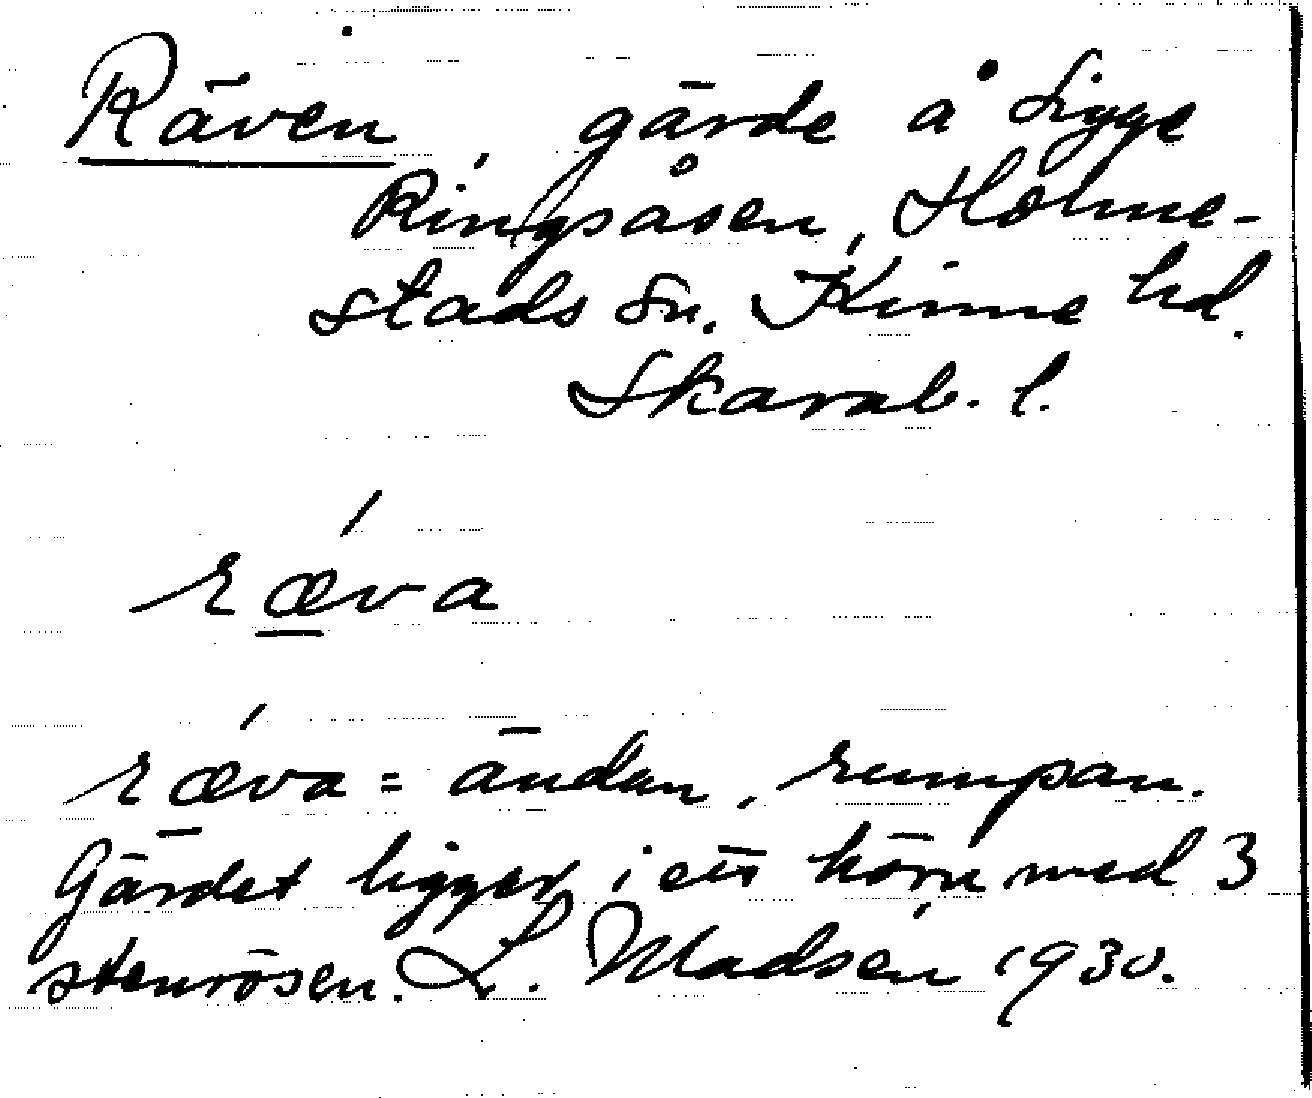 Räven, gärde å Sigge
Ringsåsen, Holme-
stads sn. Kinne hd.
Skarab. l.
rǽ̱va
rǽ̱va = ändan, rumpan.
Gärdet ligger i ett hörn med 3
stenrösen. L. Madsén 1930.